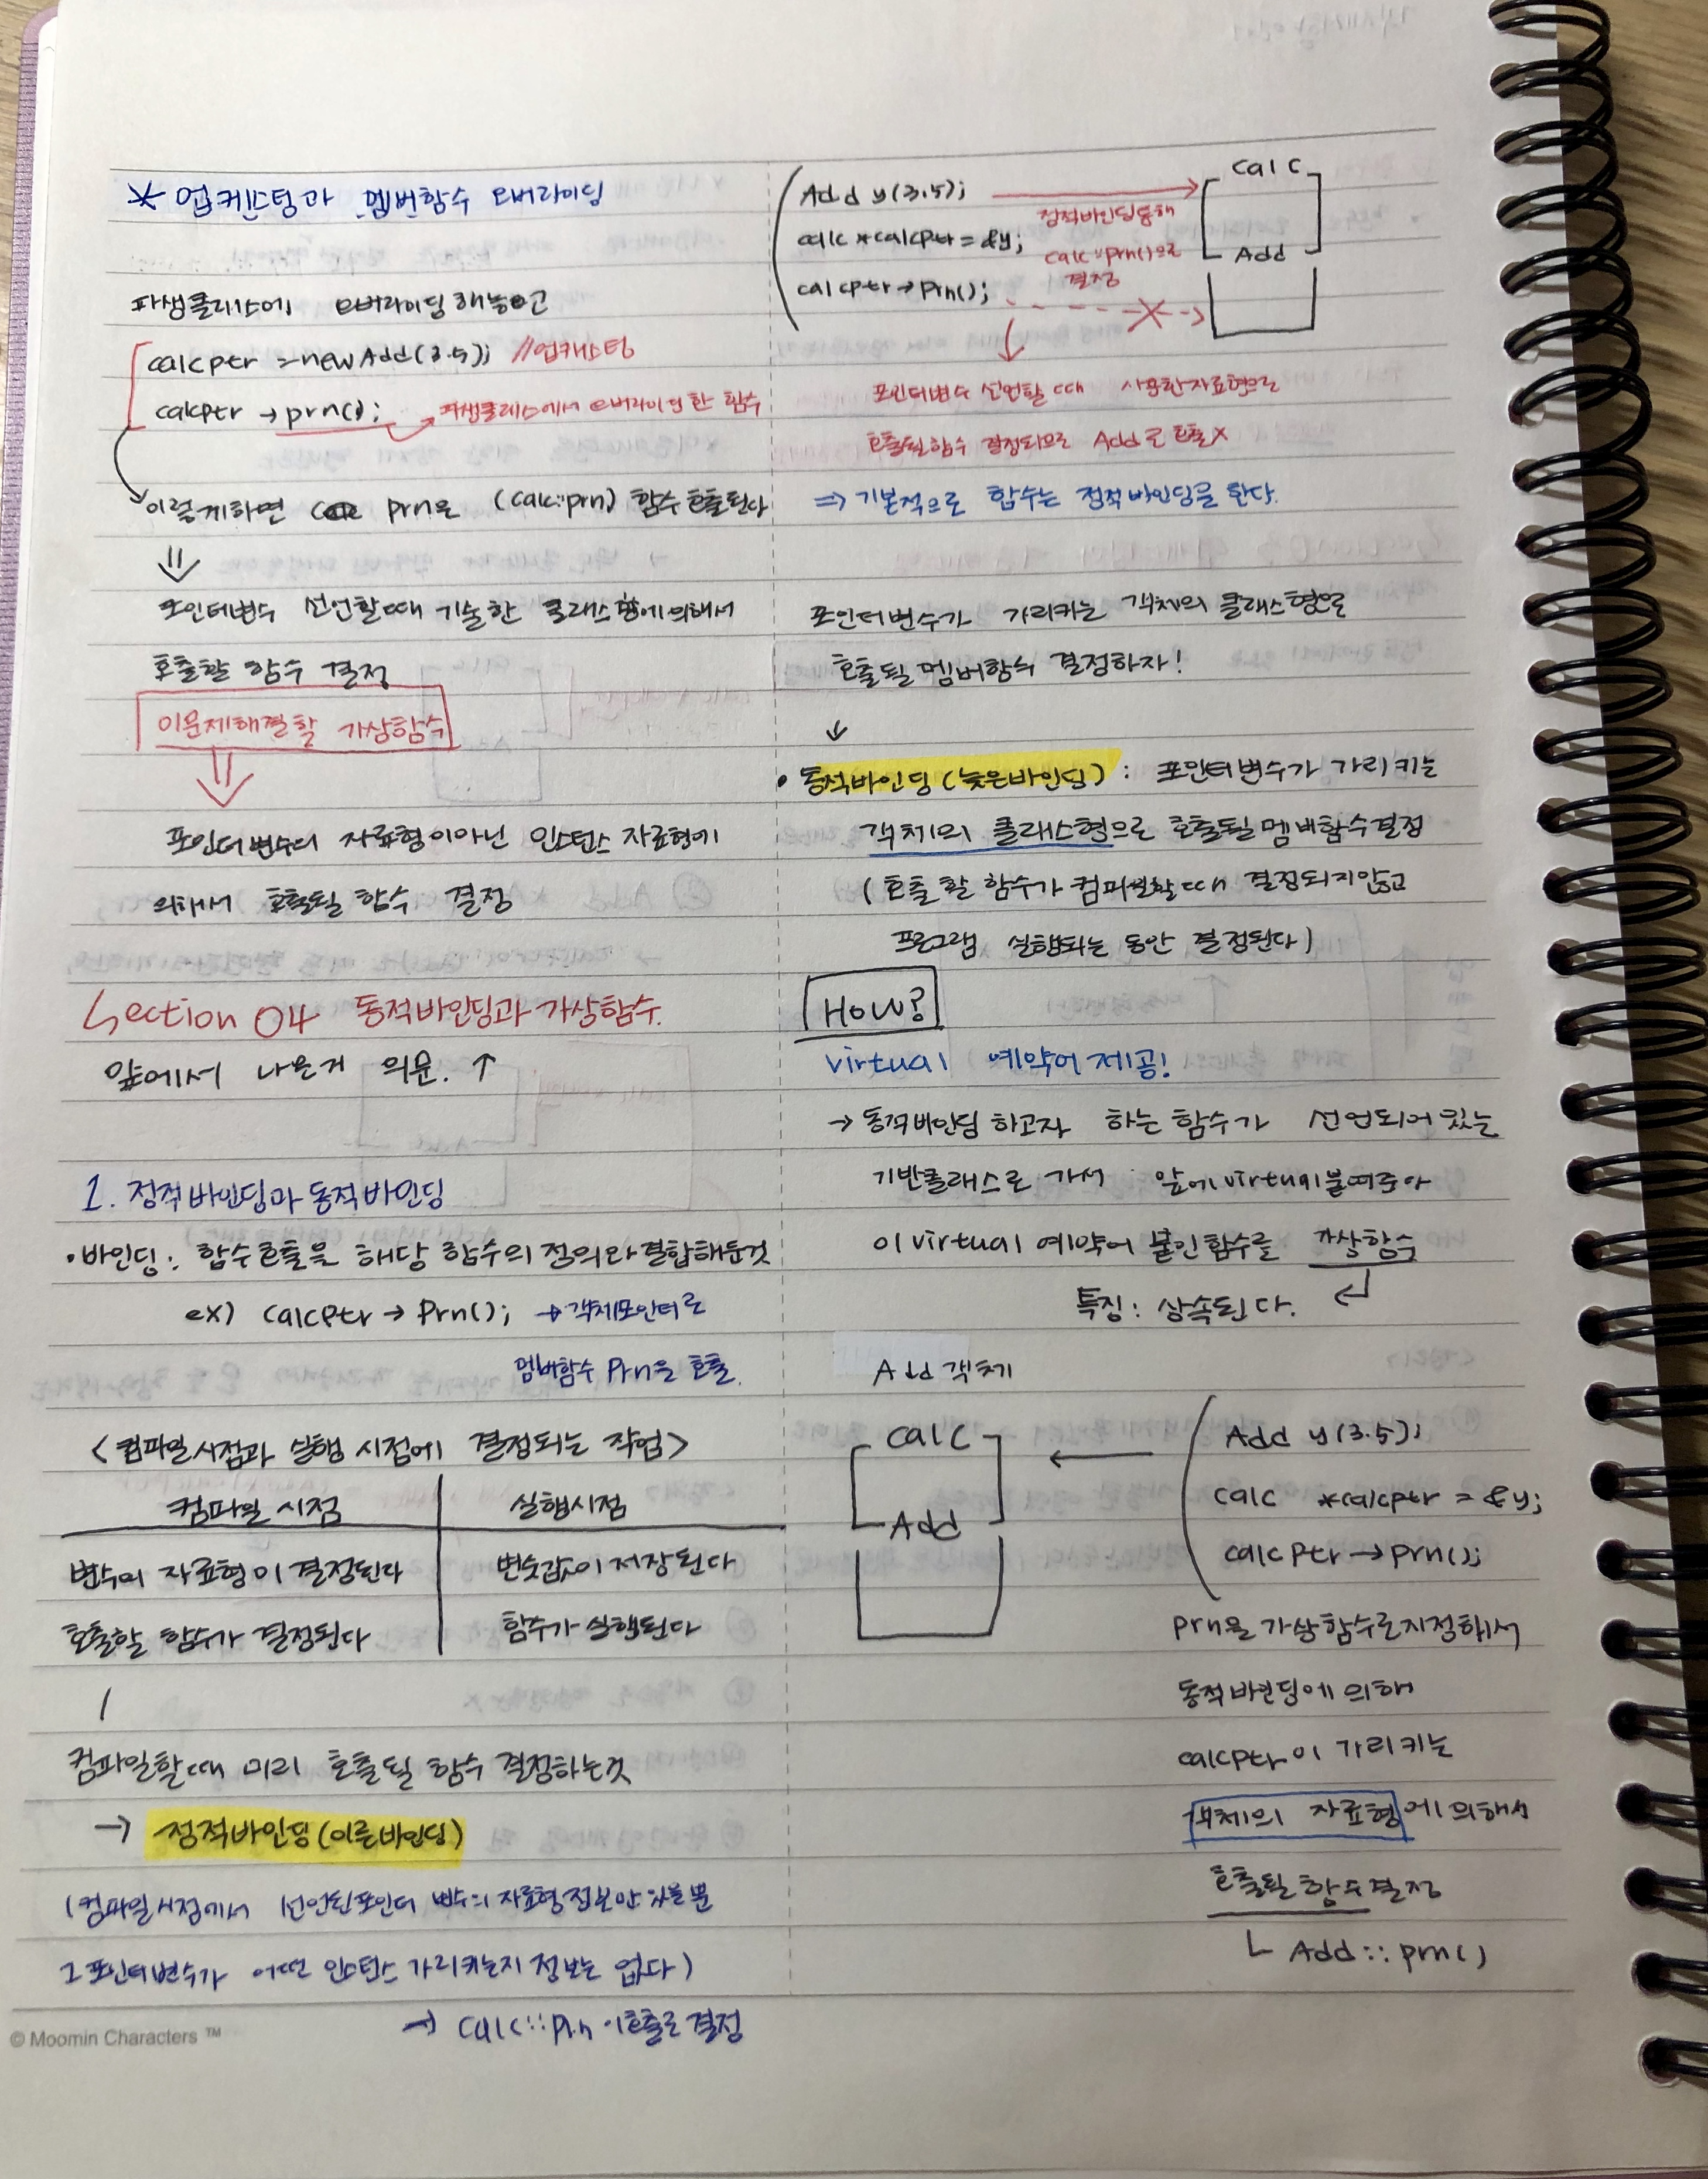 * 업케스팅과 멤버함수 오버라이딩
파생클래스에 오버라이딩 해놓고
calcptr = new Add(3.5); //업캐스팅
calcptr → prn(); → 파생클래스에서 오버라이딩한 함수
이렇게하면 prn은 (Calc::prn) 함수 호출된다
⇓
포인터변수 선언할때 기술한 클래스형에 의해서
호출할 함수 결정
이문제해결할 가상함수
⇓
포인터변수의 자료형이아닌 인스턴스 자료형에
의해서 호출될 함수 결정
Section 04 동적바인딩과 가상함수.
앞에서 나온게 의문. ↑
1. 정적바인딩과 동적바인딩
• 바인딩: 함수호출을 해당 함수의 정의와 결합해둔것
ex) Calcptr → Prn(); → 객체포인터로
멤버함수 Prn을 호출.
<컴파일시점과 실행 시점에 결정되는 작업>
컴파일 시점 실행시점
변수의 자료형이 결정된다 변숫값이 저장된다
호출할 함수가 결정된다 함수가 실행된다
컴파일할때 미리 호출될 함수 결정하는것
→ 정적바인딩(이른바인딩)
(컴파일시점에서 선언된포인터 변수의 자료형정보만 있을뿐
그 포인터변수가 어떤 인스턴스 가리키는지 정보는 없다)
→ Calc::prn 이호출로 결정
© Moomin Characters ™
Add y(3.5);
calc *calcptr = &y;
calcptr → prn();
정적바인딩통해
calc::prn()으로
결정
Calc
Add
포인터변수 선언할 때 사용한자료형으로
호출될함수 결정되므로 Add로 호출X
⇒ 기본적으로 함수는 정적바인딩을 한다.
포인터변수가 가리키는 객체의 클래스형으로
호출될 멤버함수 결정하자!
↓
• 동적바인딩(늦은바인딩): 포인터변수가 가리키는
객체의 클래스형으로 호출될멤버함수결정
(호출할 함수가 컴파일할때 결정되지않고
프로그램 실행되는 동안 결정된다)
How?
virtual 예약어 제공!
→ 동적바인딩 하고자 하는 함수가 선언되어있는
기반클래스로 가서 앞에 virtual붙여준다
이 virtual 예약어 붙인함수를 가상함수
특징: 상속된다.
Add 객체
Calc
Add
Add y(3.5);
calc *calcptr = &y;
calcptr → prn();
prn을 가상함수로지정해서
동적바인딩에 의해
calcptr이 가리키는
객체의 자료형에 의해서
호출될 함수결정
└ Add::prn()